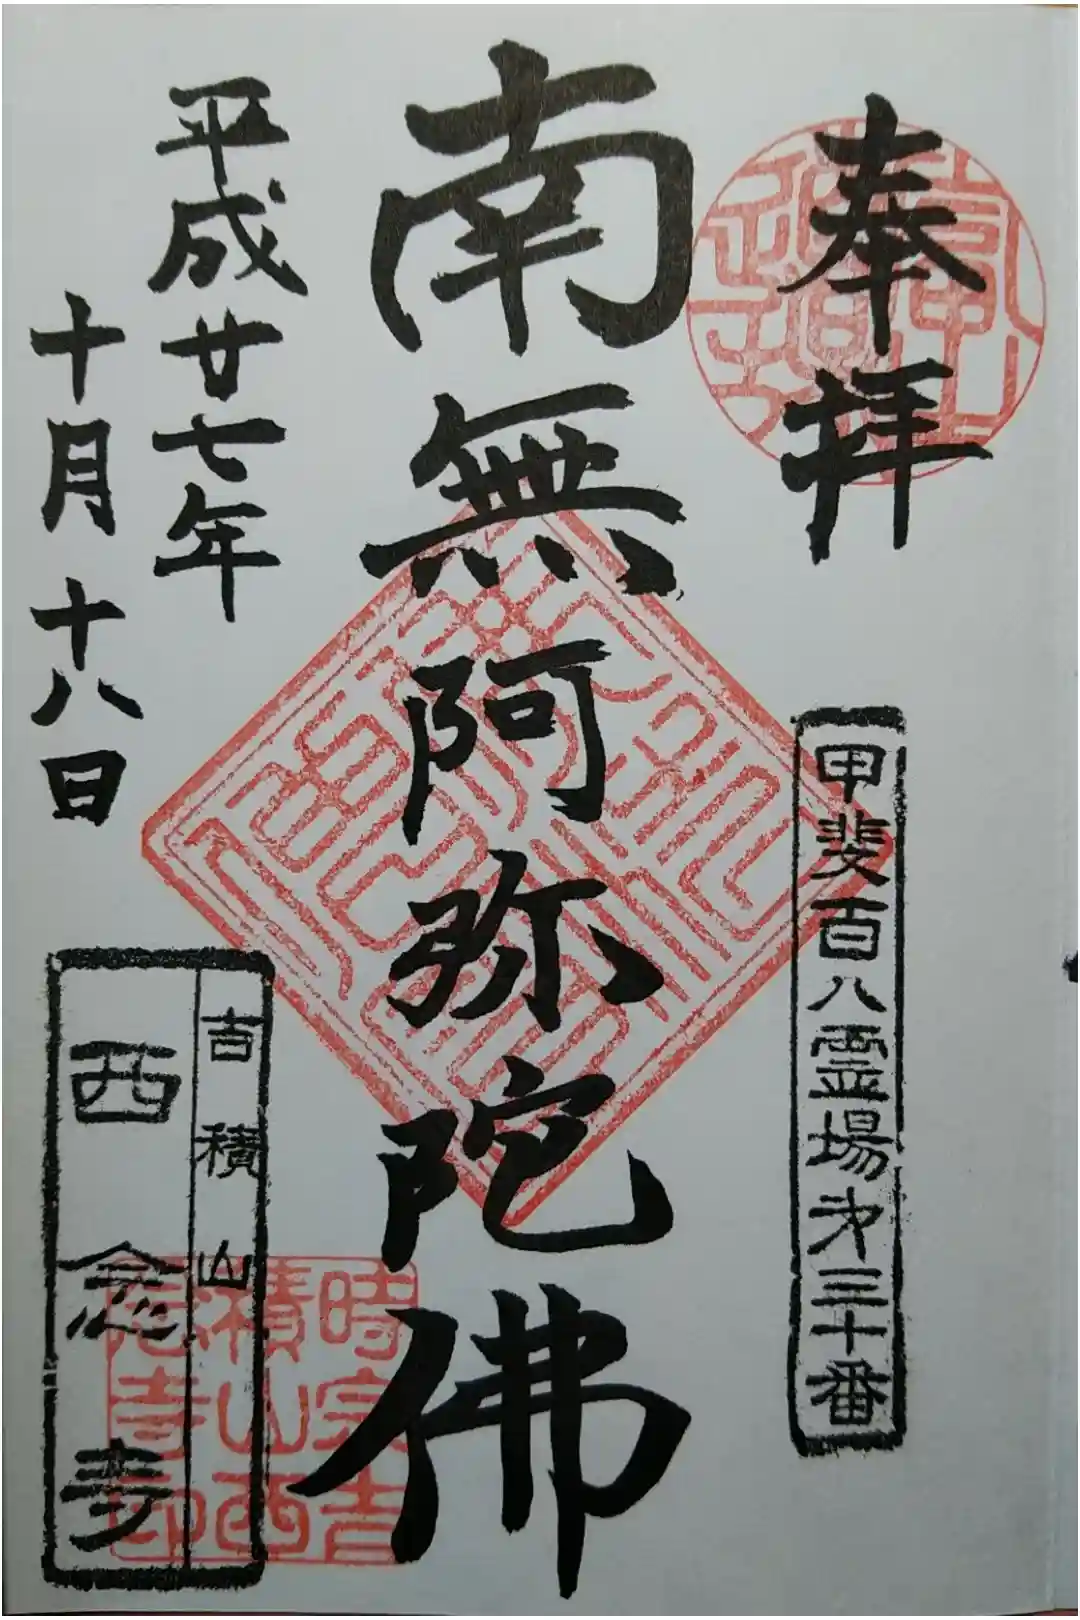 奉拝
甲斐百八霊場才三十番
南無阿弥陀佛
平成廿七年
十月十八日
吉積山
西念寺
時宗吉
積山西
念寺印